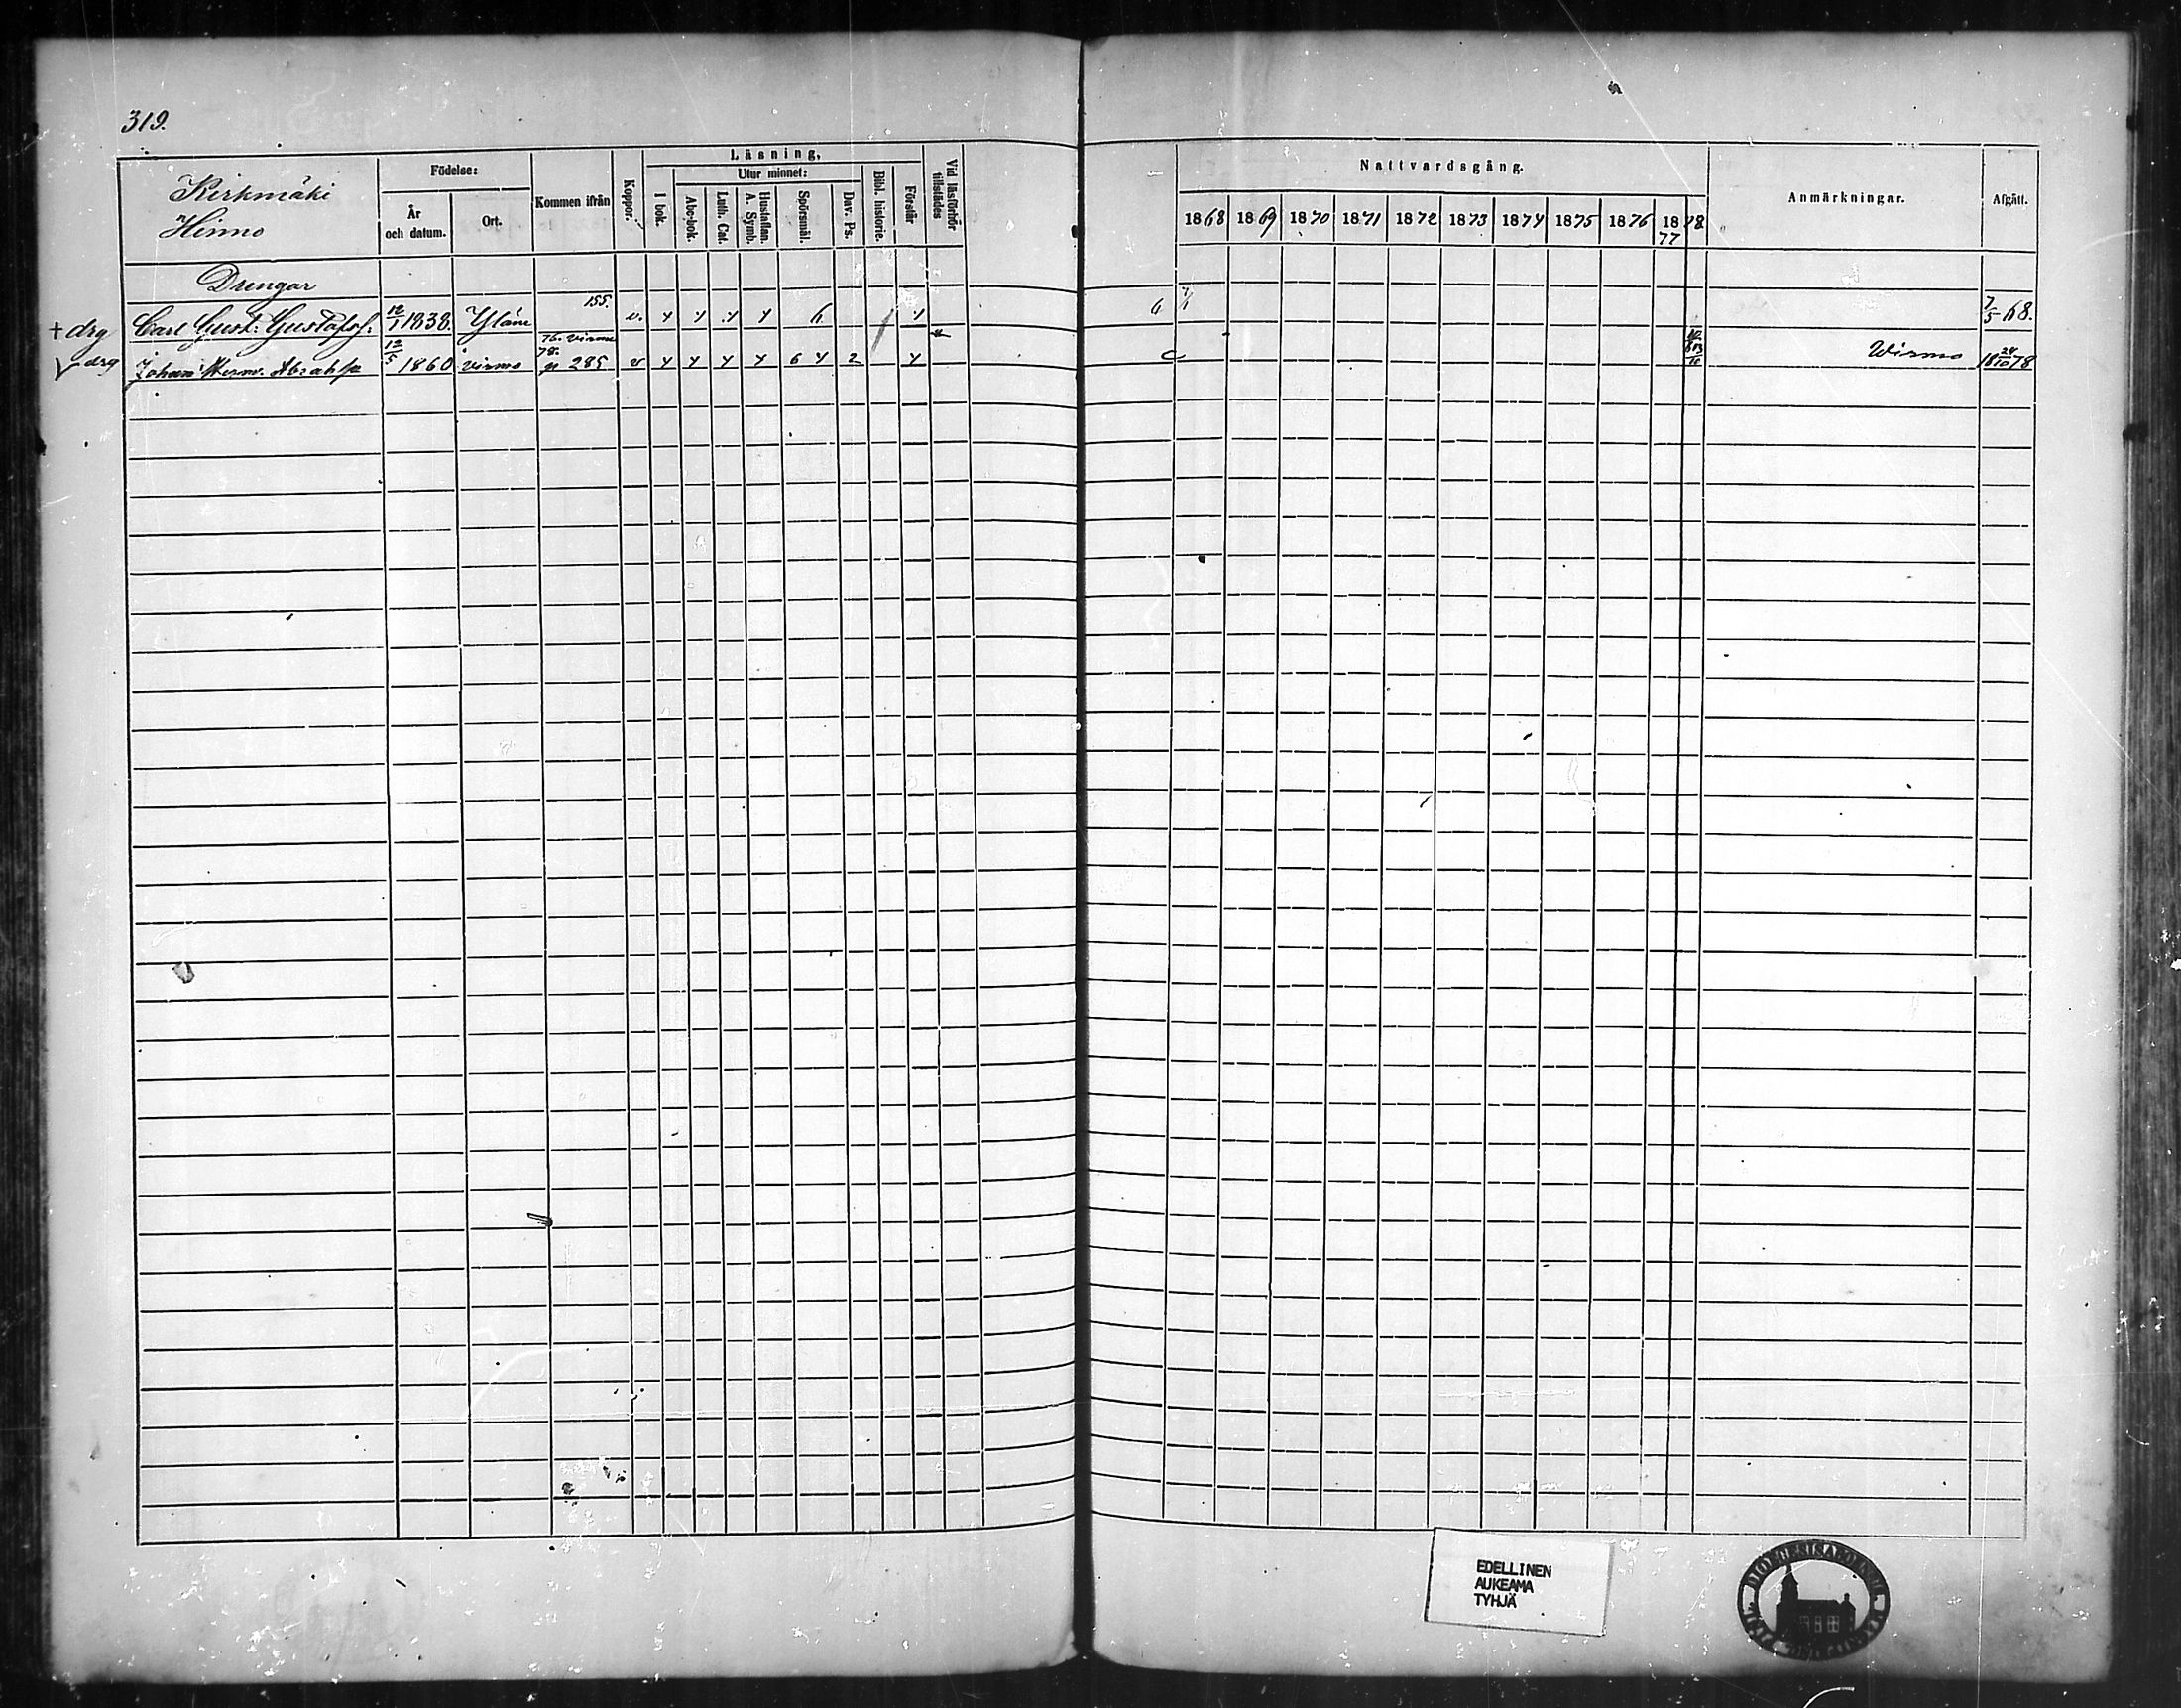 319.
Kirkmäki
Hinno
Födelse:
År och datum.
Ort.
Kommen ifrån
Koppor.
Läsning,
I bok.
Utur minnet:
Abc-bok.
Luth. Cat.
Hustaflan. A. Symb.
Spörsmål.
Dav. Ps.
Bibl. historie.
Förstår
Vid läsförhör tillstädes
Nattvardsgång.
1868 1869 1870 1871 1872 1873 1874 1875 1876 1877 78
Anmärkningar.
Afgått.
Drengar
+ drg Carl Gust: Gustafss. 12/1 1838. Yläne 155. v. 6 6 7/5 68.
drg Johan Herm. Abrahss 12/5 1860 Virmo 76. Virmo 78. p 285 v 6 4 2 Wirmo 18 24/10 78
EDELLINEN
AUKEAMA
TYHJÄ